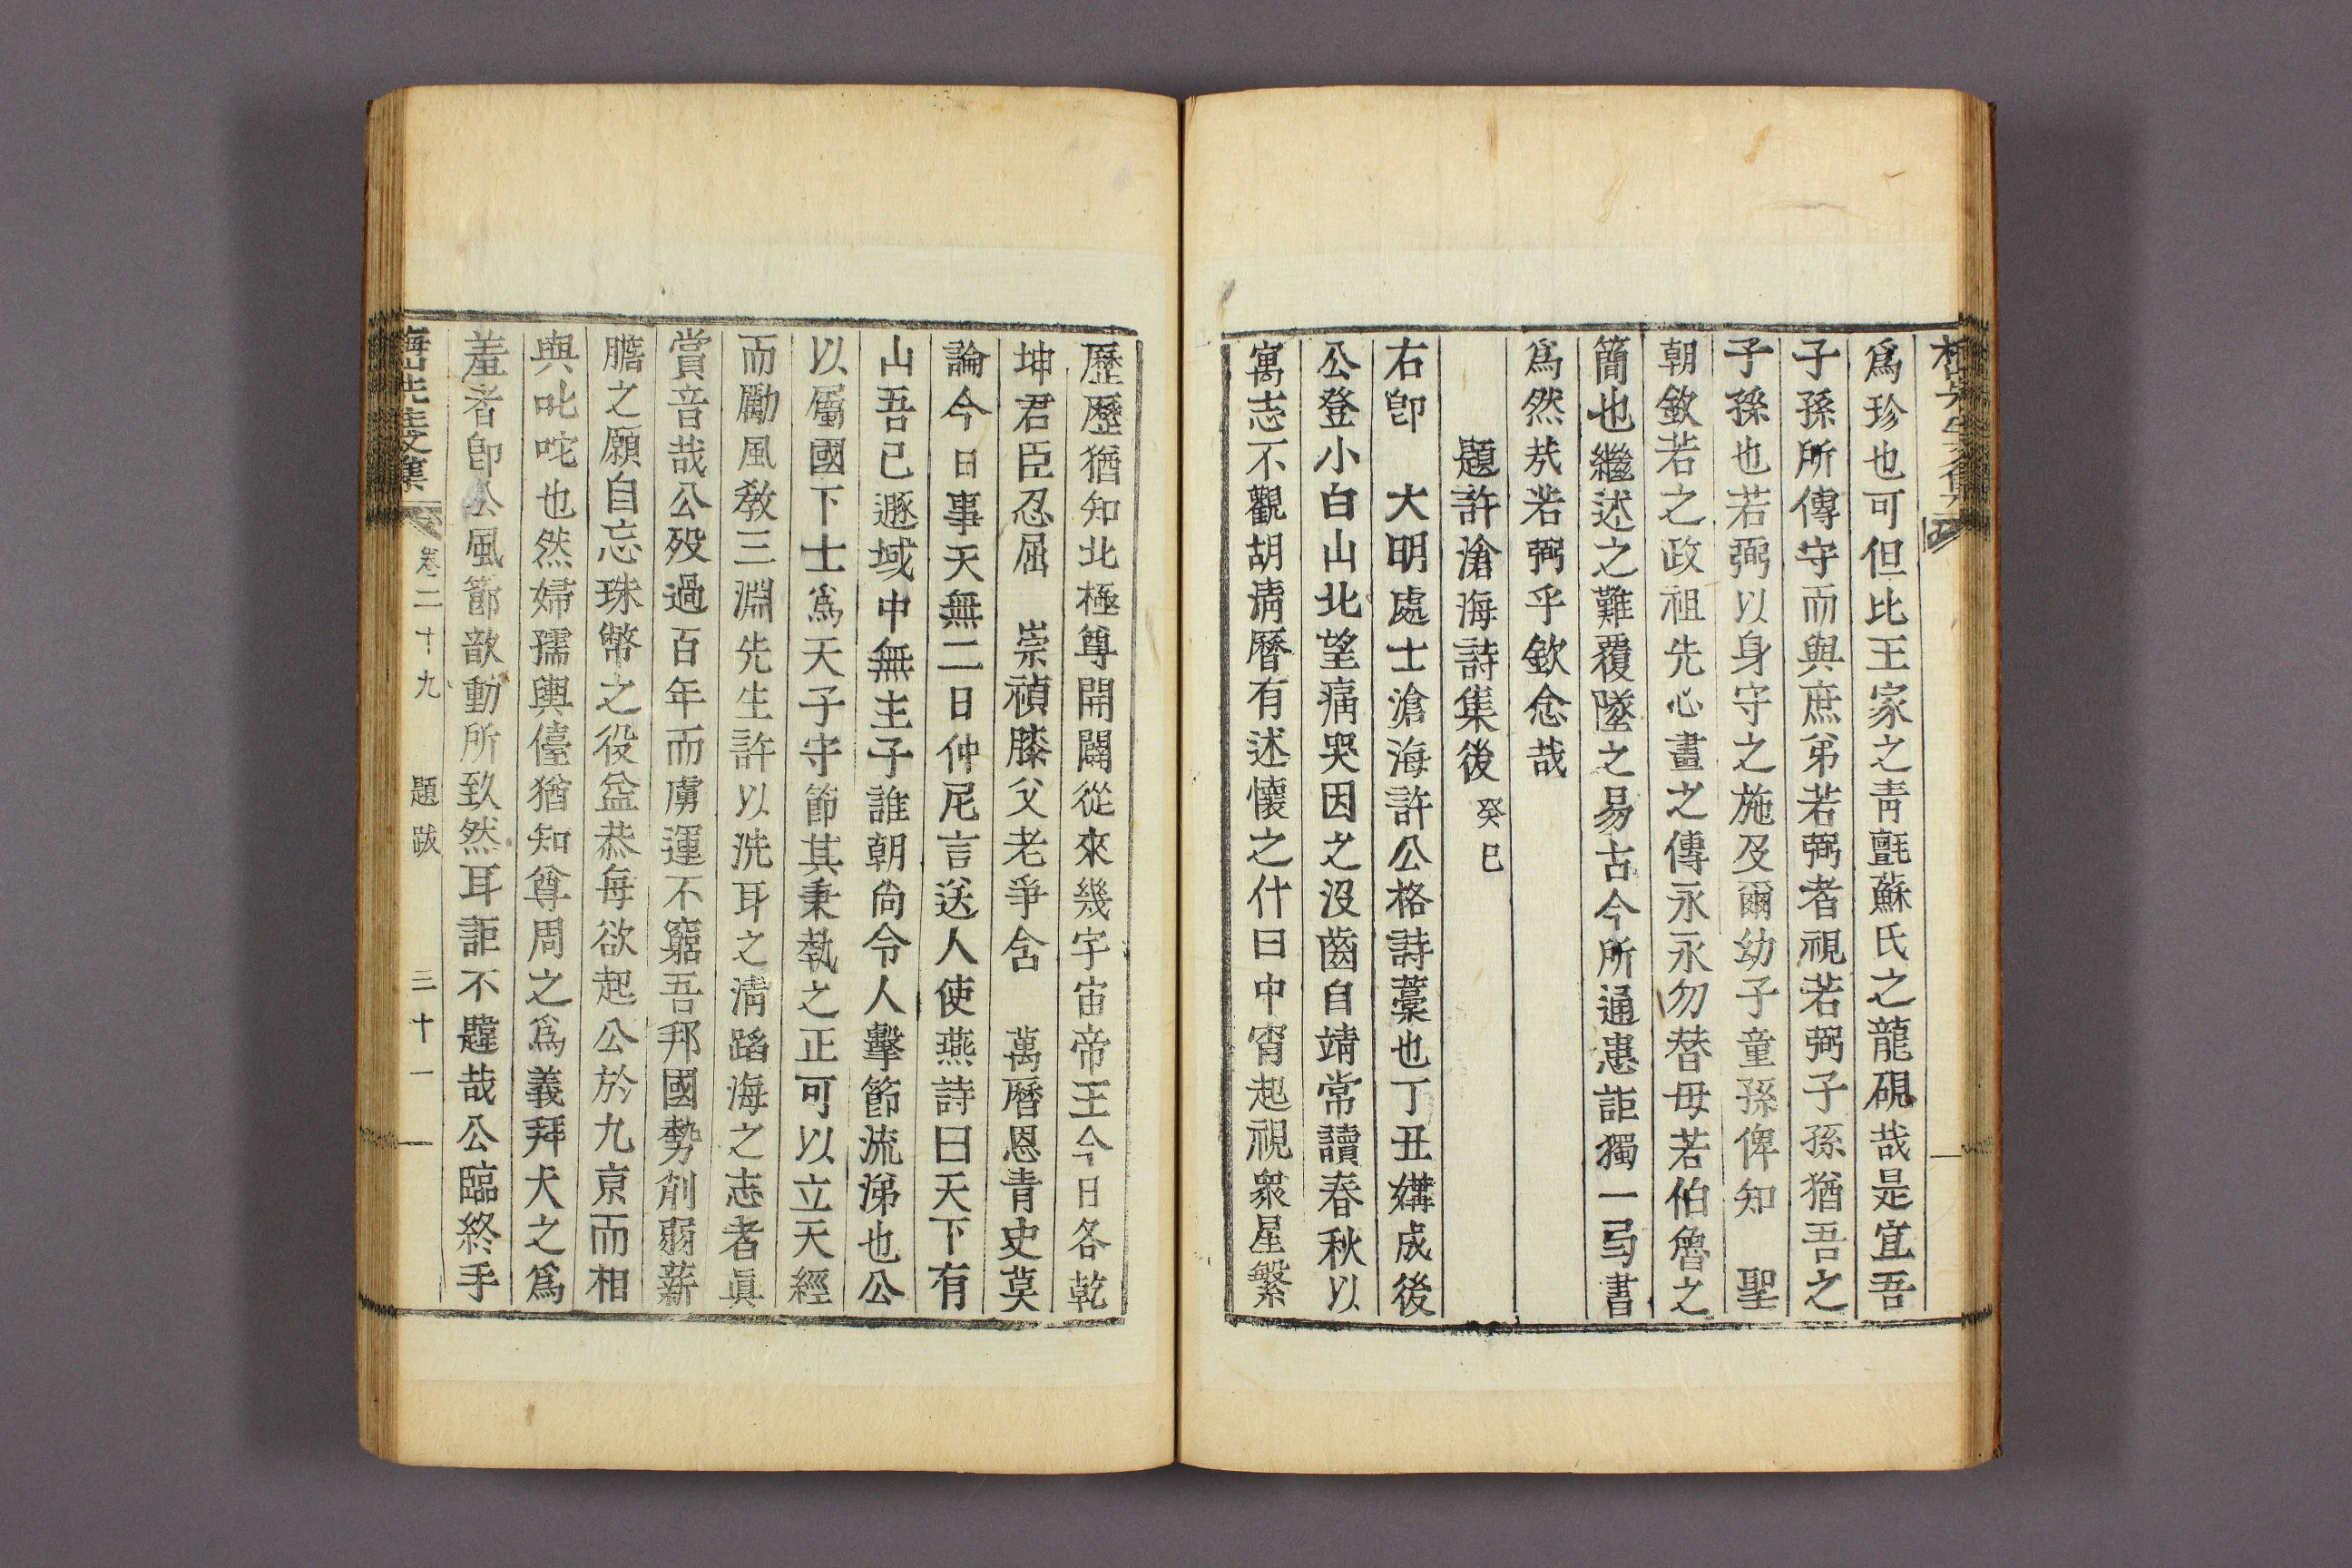 爲珍也可但比王家之靑氈蘇氏之龍硯哉是宜吾
子孫所傳守而與庶弟若弼者視若弼子孫猶吾之
子孫也若弼以身守之施及爾幼子童孫俾知 聖
朝敘若之政祖先心畫之傳永永勿替毋若伯魯之
簡也繼述之難覆墜之易古今所通患詎獨一弓書
爲然㢤若弼乎欽念哉
題許滄海詩集後 癸巳
右卽 大明處士滄海許公格詩藁也丁丑媾成後
公登小白山北望痛哭因之沒齒自靖常讀春秋以
寓志不觀胡淸曆有述懷之什曰中宵起視衆星繁
歷歷猶知北極尊開闢從來幾宇宙帝王今日各乾
坤君臣忍屈 崇禎膝父老爭含 萬曆恩靑史莫
論今日事天無二日仲尼言送人使燕詩曰天下有
山吾已遯域中無主子誰朝尙令人擊節流涕也公
以屬國下士爲天子守節其秉執之正可以立天經
而勵風敎三淵先生許以洗耳之淸蹈海之志者眞
賞音哉公歿過百年而虜運不窮吾邦國勢削弱薪
膽之願自忘珠幣之役益恭每欲起公於九京而相
與叱咤也然婦孺輿儓猶知尊周之爲義拜犬之爲
羞者卽公風節歆動所致然耳詎不韙哉公臨終手
梅山先生文集 卷二十九 題跋 三十一